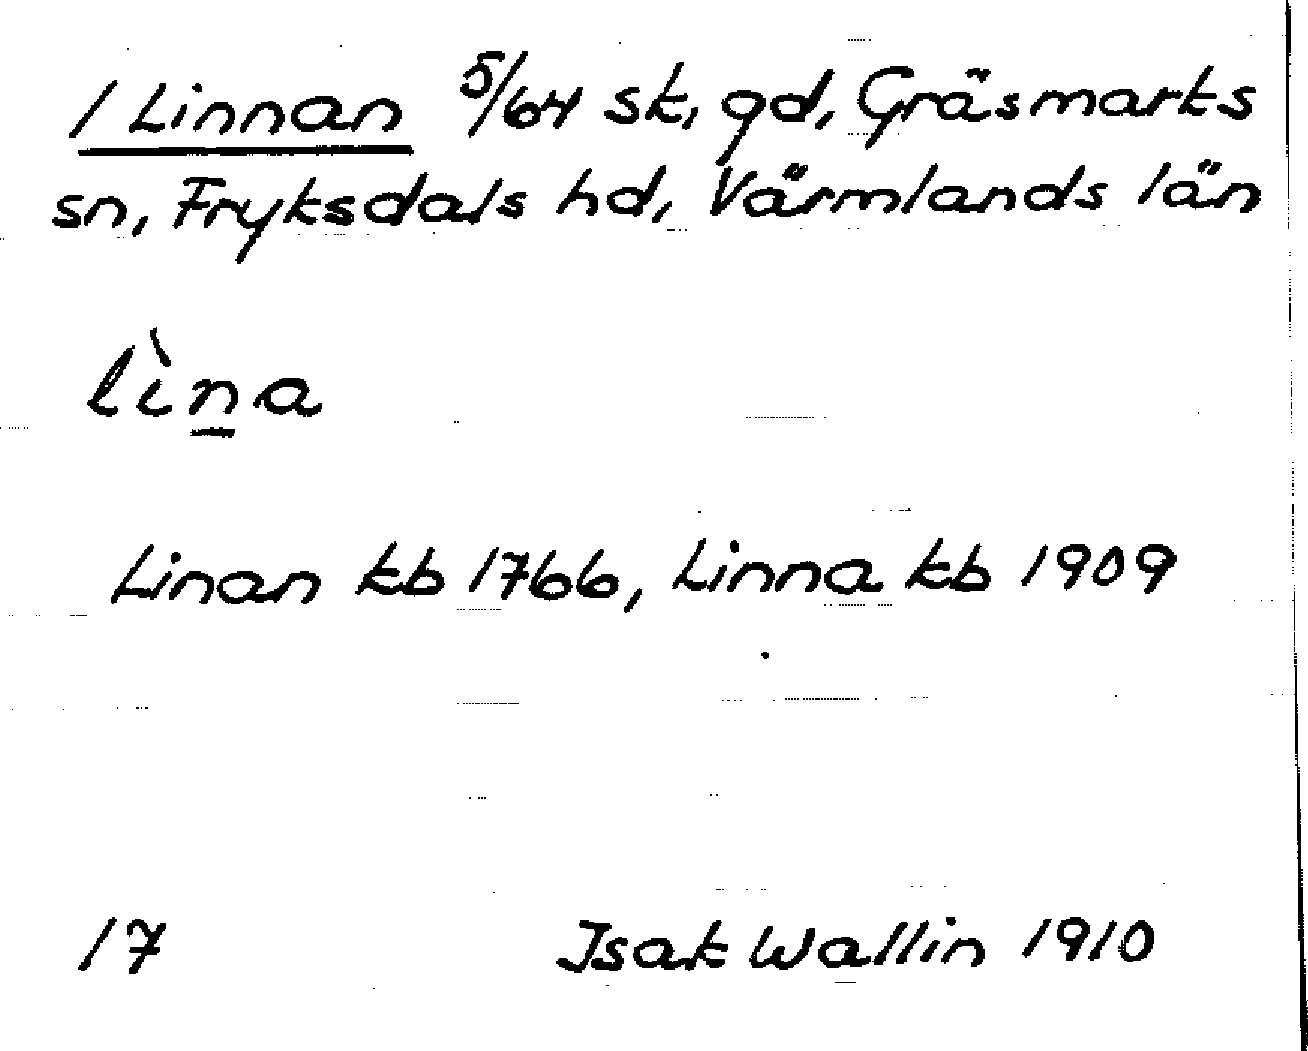 1 Linnan 5/64 sk, gd, Gräsmarks
sn, Fryksdals hd, Värmlands län
lìn̲a
Linan kb 1766, Linna kb 1909
17 Isak Wallin 1910